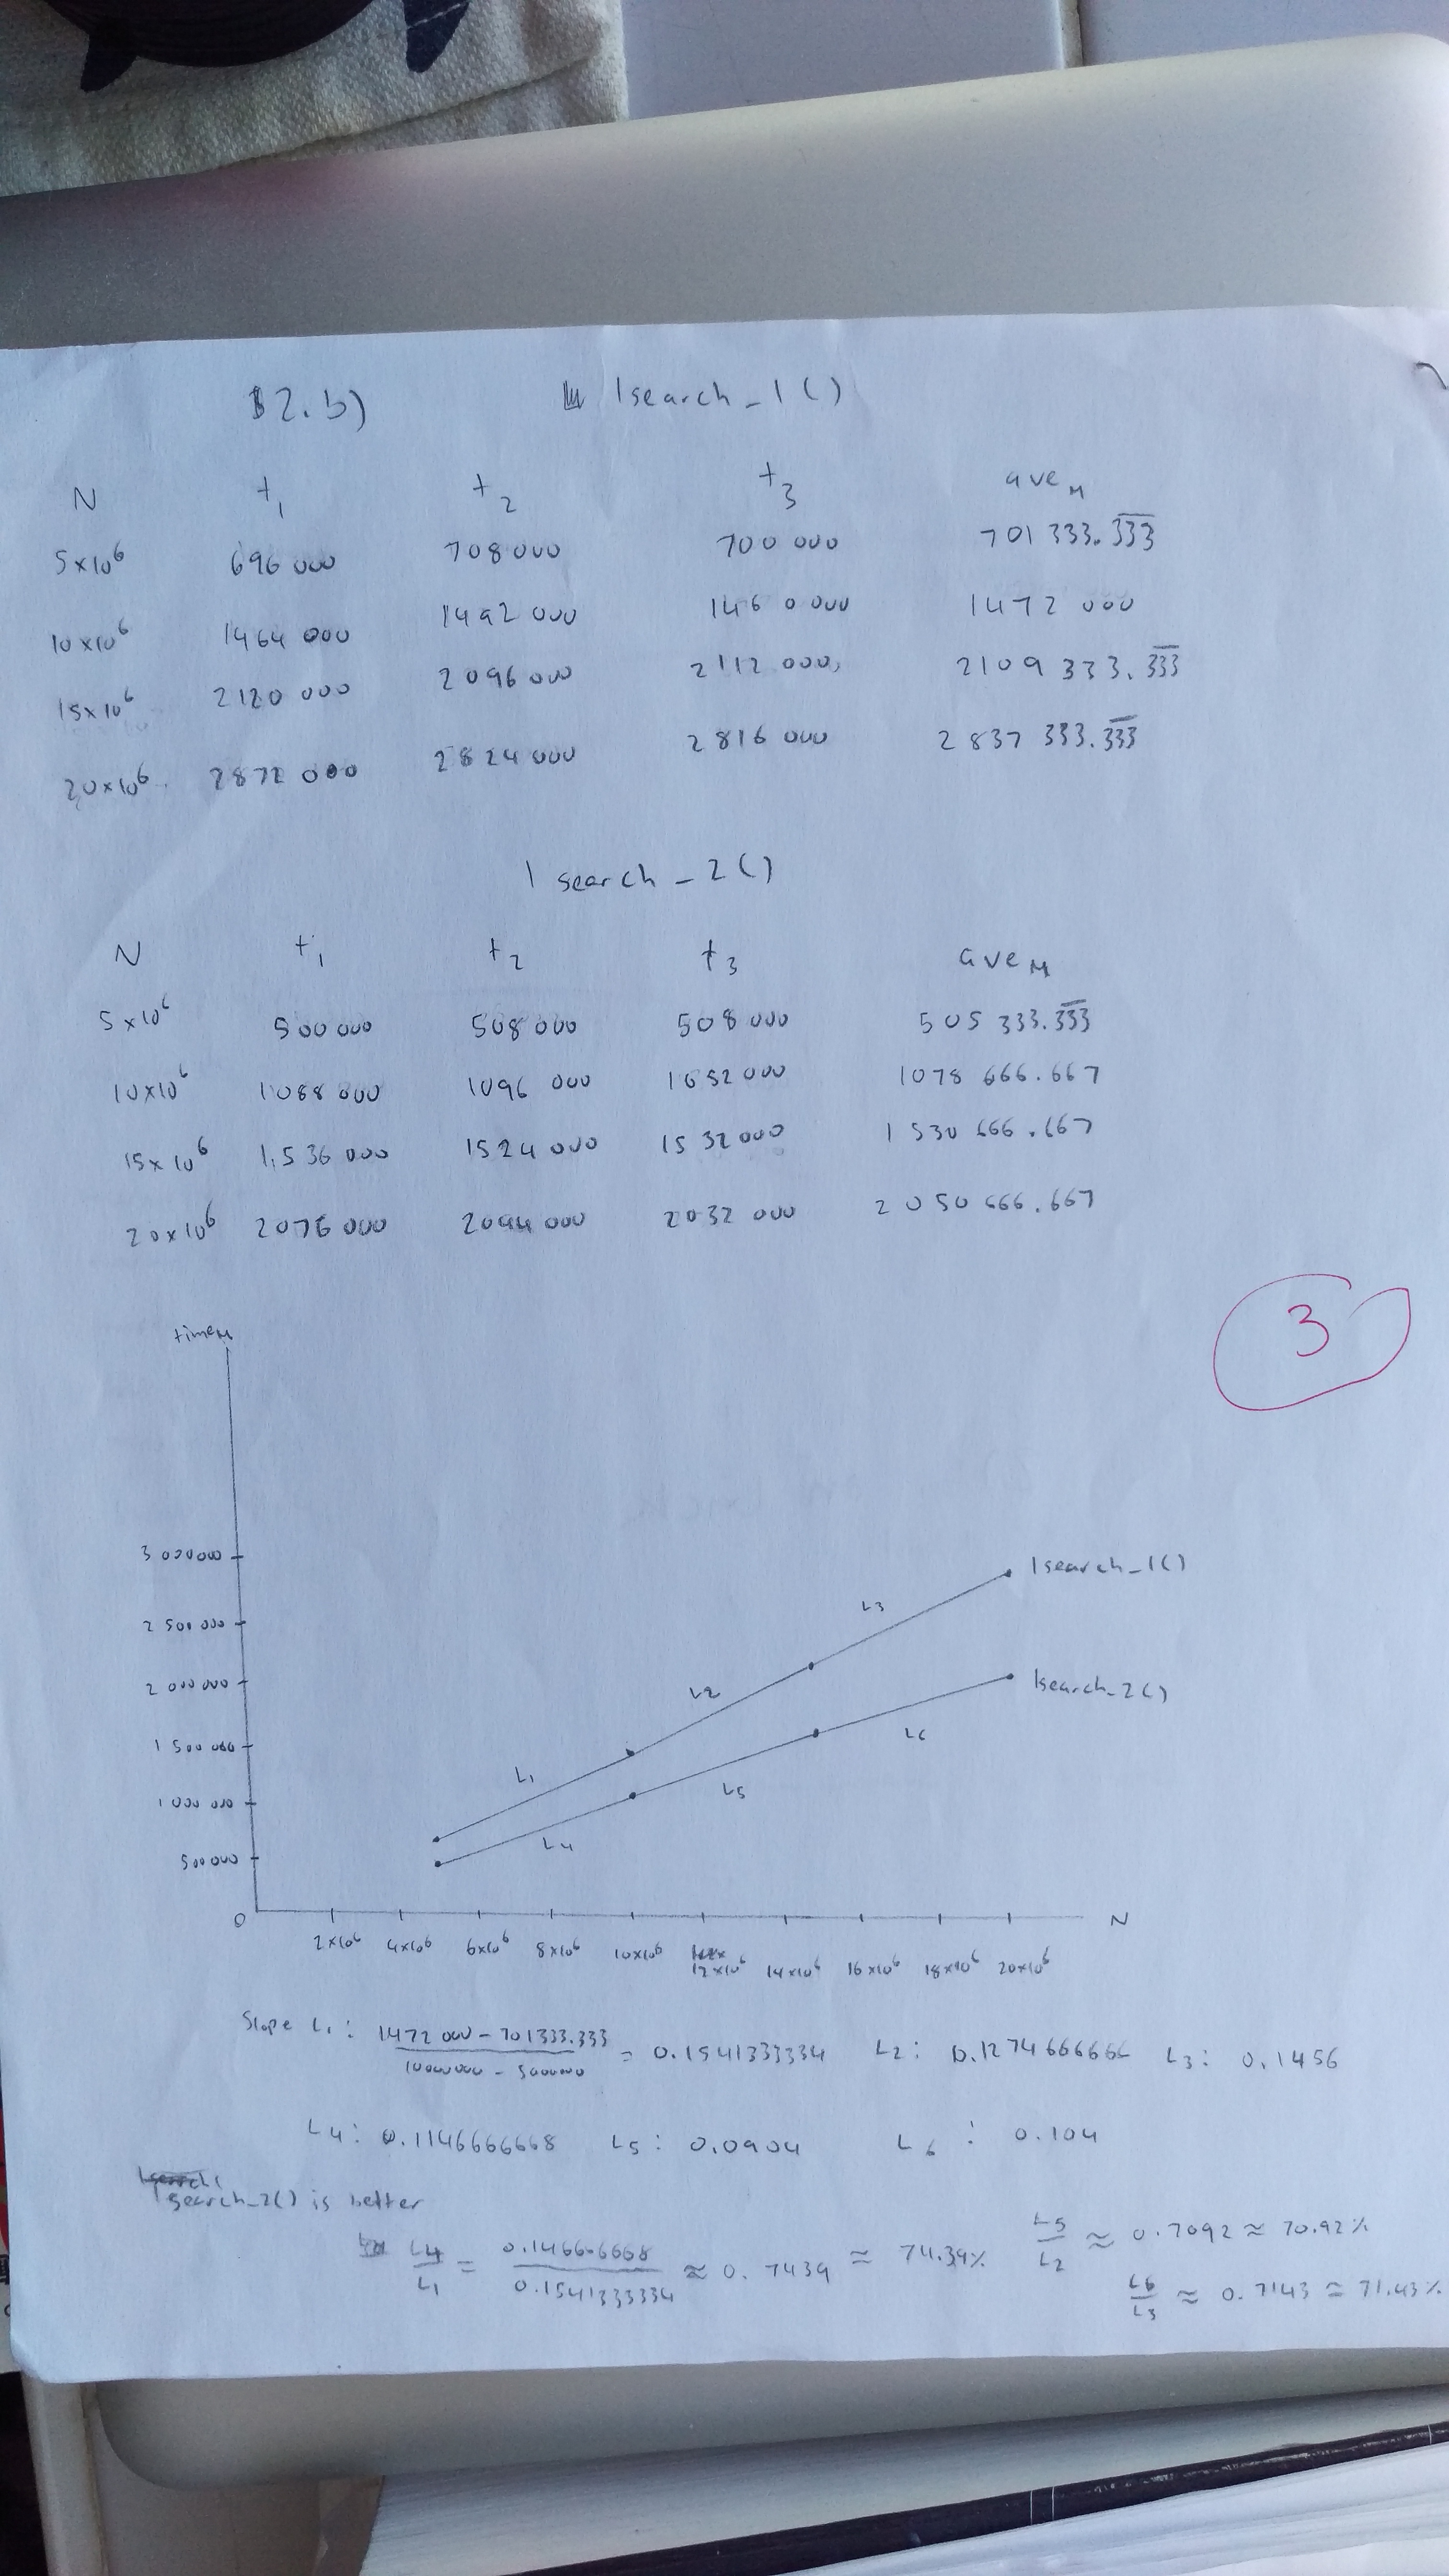 2.b) lsearch_1()
N t1 t2 t3 aveM
5x10^6 696 000 708000 700 000 701 333.333
10x10^6 1464 000 1492 000 1460 000 1472 000
15x10^6 2120 000 2096 000 2112 000 2109 333.333
20x10^6 2872 000 2824 000 2816 000 2837 333.333
lsearch_2()
N t1 t2 t3 aveM
5x10^6 500 000 508 000 508 000 505 333.333
10x10^6 1088 000 1096 000 1052 000 1078 666.667
15x10^6 1536 000 1524 000 1532000 1530 666.667
20x10^6 2076 000 2044 000 2032 000 2050 666.667
3
timeM
3 000000
2 500 000
2 000 000
1 500 000
1 000 000
500 000
0
lsearch_1()
L3
L2
lsearch_2()
L6
L1
L5
L4
N
2x10^6 4x10^6 6x10^6 8x10^6 10x10^6 12x10^6 14x10^6 16x10^6 18x10^6 20x10^6
Slope L1: (1472 000 - 701333.333)/(10000000 - 5000000) = 0.1541333334 L2: 0.1274666666 L3: 0.1456
L4: 0.1146666668 L5: 0.0904 L6: 0.104
lsearch_2() is better
L4/L1 = 0.146666668/0.1541333334 ≈ 0.7439 ≈ 74.39% L5/L2 ≈ 0.7092 ≈ 70.92%
L6/L3 ≈ 0.7143 ≈ 71.43%